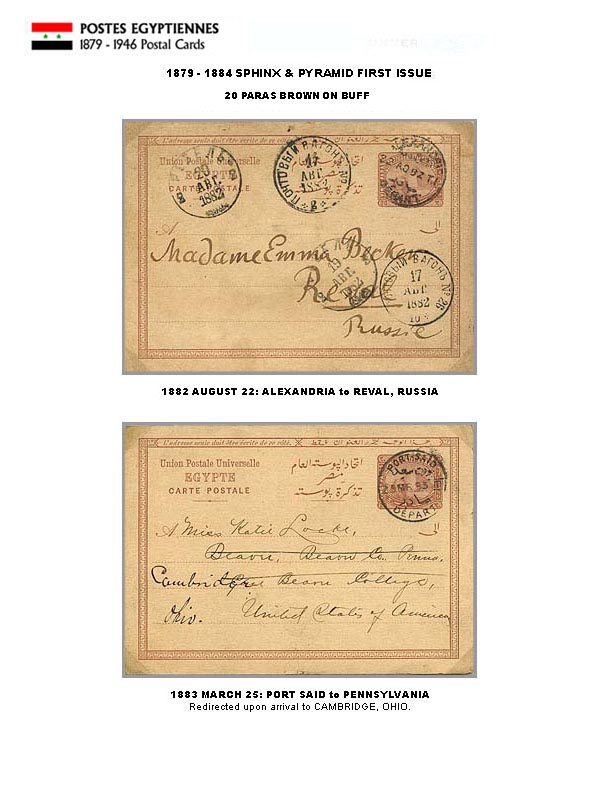 POSTES EGYPTIENNES
1879 - 1946 Postal Cards
1879 - 1884 SPHINX & PYRAMID FIRST ISSUE
20 PARAS BROWN ON BUFF
L'adresse seule doit être écrite de ce côté.
Union Postale Universelle
CARTE POSTALE
ПОЧТОВЫЙ ВАГОНЪ №
17
АВГ.
1882
20
АВГ.
1882
A
Madame Emma Becker
Reval
Russie
19
АВГ.
1882
ПОЧТОВЫЙ ВАГОНЪ № 26
17
АВГ.
1882
1882 AUGUST 22: ALEXANDRIA to REVAL, RUSSIA
L'adresse seule doit être écrite de ce côté.
Union Postale Universelle
EGYPTE
CARTE POSTALE
اتحاد البوستة العام
مصر
تذكرة بوستة
PORT-SAID
DÉPART
A Miss Katie Locke,
Beaver, Beaver Co. Penna.
Cambridge Beaver College,
Ohio. United States of America
1883 MARCH 25: PORT SAID to PENNSYLVANIA
Redirected upon arrival to CAMBRIDGE, OHIO.